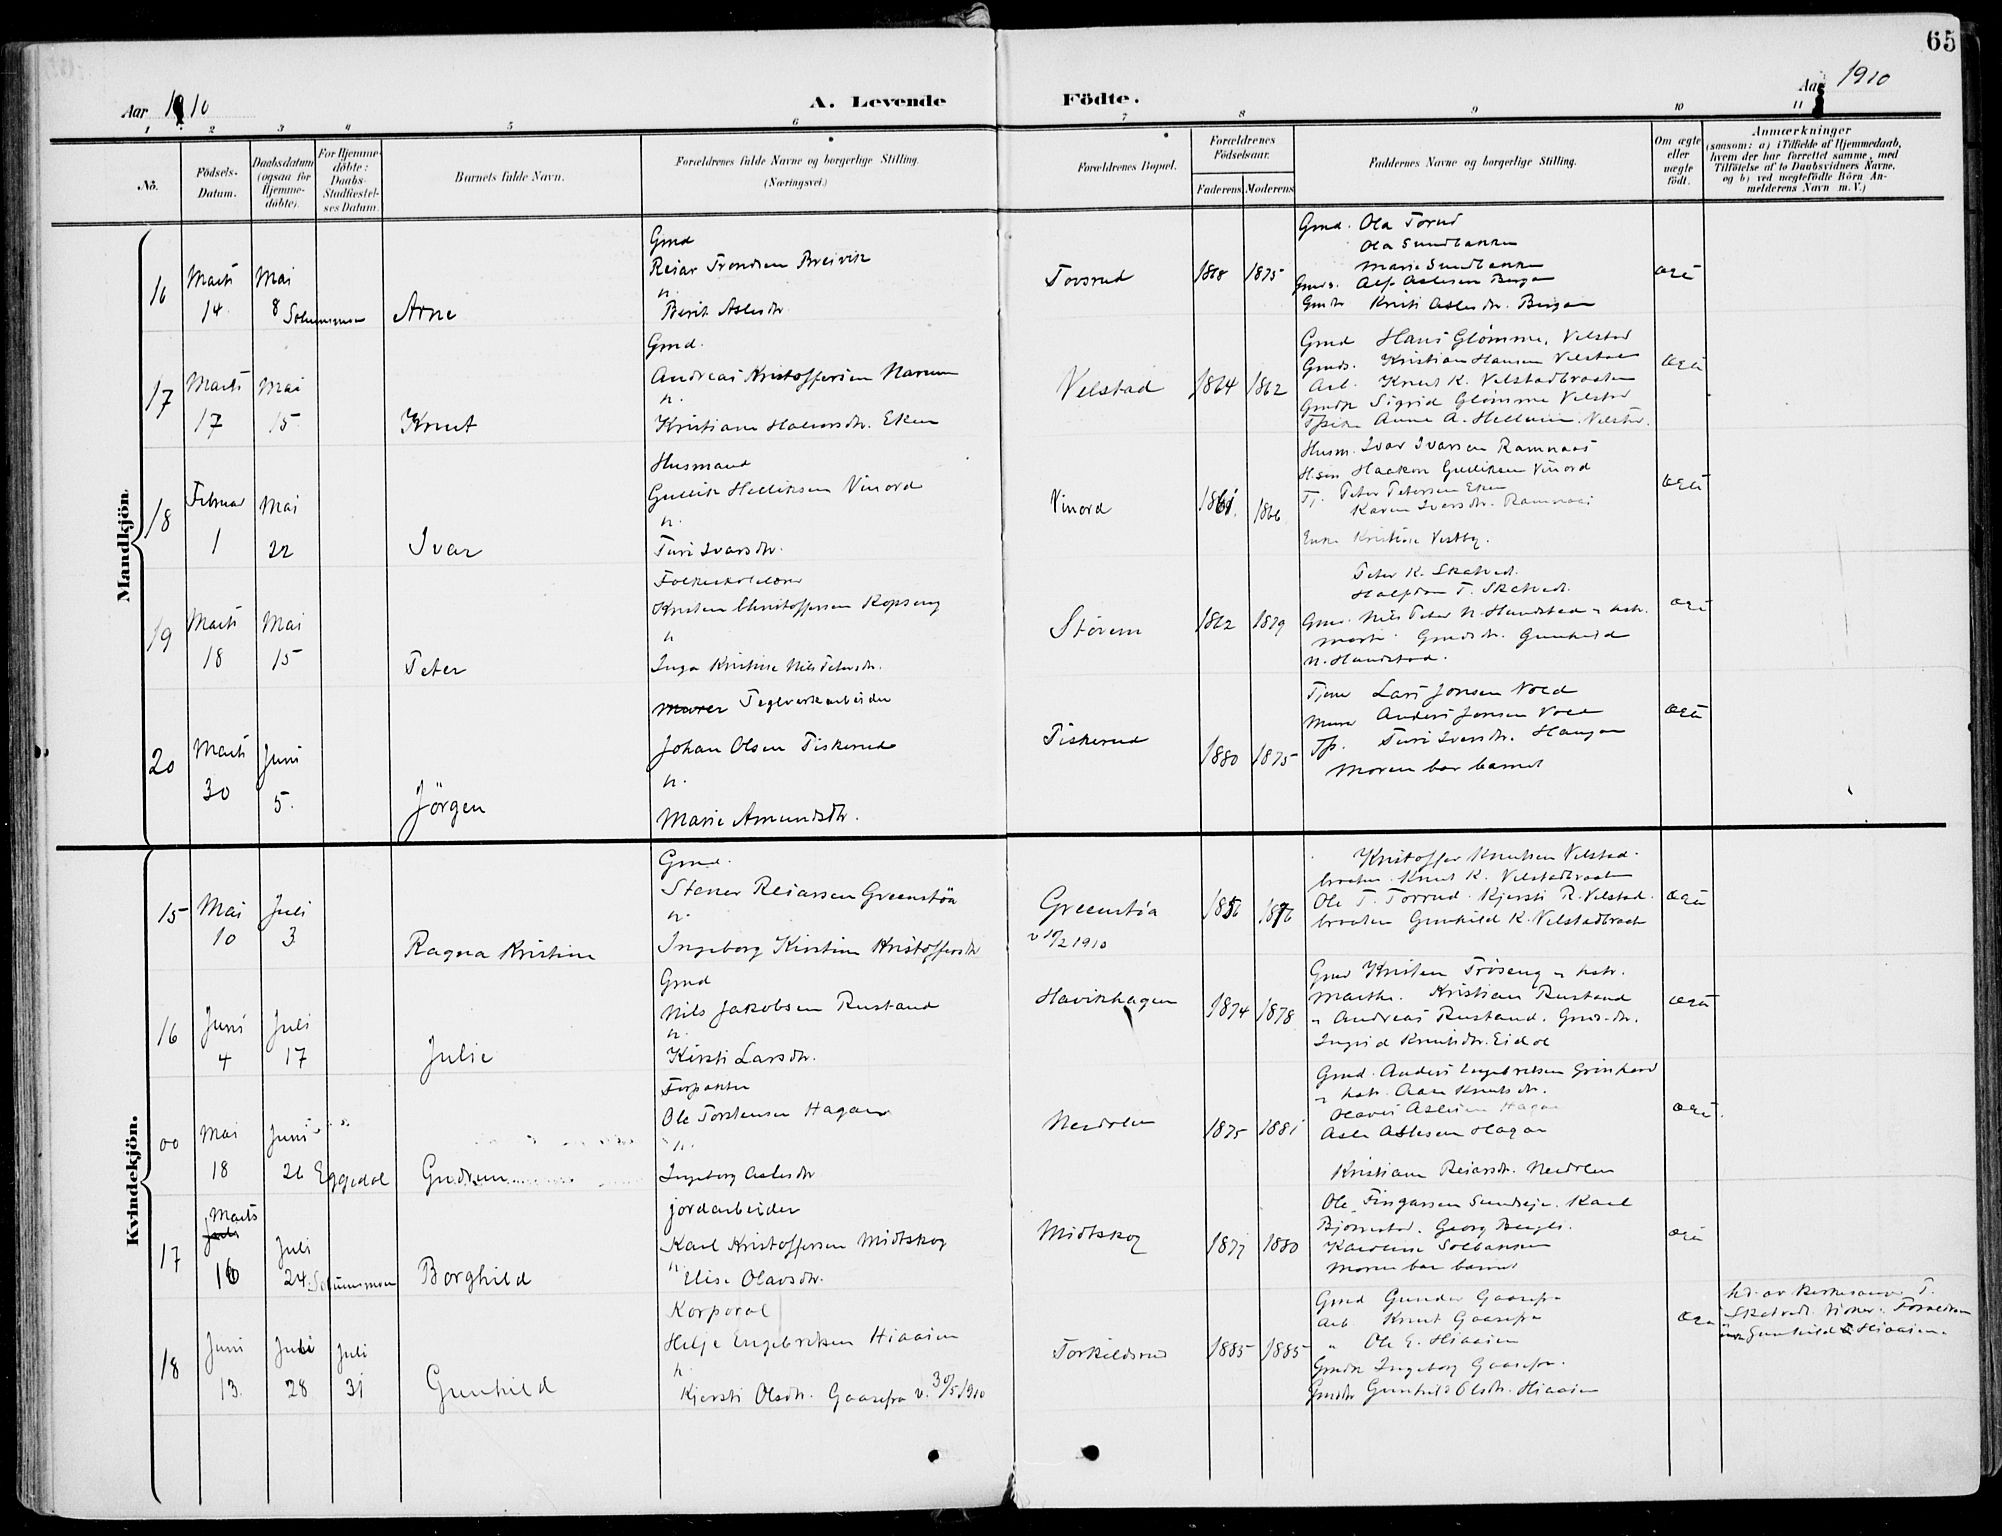 65
Aar 1910
A. Levende Födte.
Aar 1910
1 2 3 4 5 6 7 8 9 10 11
No.
Födsels-Datum.
Daabsdatum (ogsaa for Hjemmedöbte).
For Hjemmedöbte: Daabs-Stadfæstelses Datum.
Barnets fulde Navn.
Forældrenes fulde Navne og borgerlige Stilling. (Næringsvei.)
Forældrenes Bopæl.
Forældrenes Födselsaar.
Faderens Moderens
Faddernes Navne og borgerlige Stilling.
Om ægte eller uægte födt.
Anmærkninger
(saasom: a) i Tilfælde af Hjemmedaab, hvem der har forrettet samme, med Tilföielse af to Daabsvidners Navne, og b) ved uægtefödte Börn Anmelderens Navn m. V.)
Mandkjön.
16
Marts 14.
Mai 8
Arne
Gmd
Reiar Trondsen Breivik
Berit Aslesdtr.
Tovsrud
1868 1875
Gmd. Ola Torud
Ola Sundbakken
Marie Sundbakken
Gmds. Alf Aslesen Bergan
Gmdtr Kristi Aslesdtr. Bergan
ægte
17
Marts 17
Mai 15
Knut
Gmd.
Andreas Kristoffersen Narum
Kristiane Halvorsdtr. Eken
Velstad
1864 1862
Gmd Hans Glømme, Velstad
Gmds. Kristian Hansen Velstad
Arb. Knut K. Velstadbraaten
Sigrid Glømme Velstad
Anne A.
ægte
18
Februar 1
Mai 22
Ivar
Husmand
Gullik Helliksen Vinord
Turi Ivarsdtr.
Vinord
1861. 1866
Husm. Ivar Ivarsen Ramnaas
Haakon Gulliksen Vinord
Tj. Peter Petersen Eken
Karen Iversdtr. Ramnaas
Enke Kristine Vestby.
ægte
19
Marts 18
Mai 15
Peter
Folkeskolelærer
Kristen Christoffersen Kopseng
Inga Kristine Nils Petersdtr.
Støvern
1862 1879
Peter K. Skatvedt.
Halfdan T. Skatvedt.
Gmd. Nils Peter N. Handstad
Gmdsdtr. Gunhild
N. Handstad.
ægte
20
Marts 30
Juni 5.
Jörgen
Murer Teglverkarbeider
Johan Olsen Fiskerud
Marie Amundsdtr.
Fiskerud
1880 1875
Tjener Lars Jonsen Vold
Murer Anders Jonsen Vold
Turi Iversdtr. Haugan
Moren bar barnet
ægte
Kvindekjön.
15
Mai 10
Juli 3
Ragna Kristine
Gmd.
Stener Reiarsen Greenstøa
Ingeborg Kirstine Kristoffersdtr
Greenstøa
v 10/2 1910
1856 1876
Kristoffer Knutsen Velstad-
braaten. Knut K. Velstadbraaten
Ole T. Torrud. Kjersti R. Velstad-
braaten Gunhild K. Velstadbraat
ægte
16
Juni 4
Juli 17
Julie
Gmd
Nils Jakobsen Rustand
Kirsti Larsdtr.
Havikhagen
1874 1878
Gmd Kristen Frøseng
Marthe. Kristian Rustand
Andreas Rustand. Gmds.dtr.
Ingrid Knutsdtr. Eidal
ægte
00
Mai 18
Juni 26 Eggedal
Gudrun
Forpakter
Ole Torstensen Hagan
Ingeborg Aslesdtr
Nerdolen
1875 1881
Gmd. Anders Engebretsen
hstr. Aase Knutsdtr.
Olaves Aslesen Hagan
Asle Aslesen Hagan
Kristiane Reiarsdtr. Nerdolen
ægte.
17
Marts
16
Juli 24.
Borghild
jordarbeider
Karl Kristoffersen Midtskog
Elise Olavsdtr.
Midtskog
1877 1880
Ole Fingarsen Sundeje. Karl
Bjørnstad. Georg
Karoline Solbakken
Moren bar barnet
ægte
18
Juni 13.
Juli 28
Juli 31
Gunhild
Korporal
Helje Engebretsen Hiaasen
Kjersti Olsdtr. Gaasefra v. 30/5 1910
Torkildsrud
1885 1885
Gmd Gunder Gaasefra
Arb Knut Gaasefra
" Ole E. Hiaasen
Ingeborg Gaasefra.
Gunhild Olsdtr. Hiaasen
ægte
hd. av T.
Skatvedt.
Gunhild Hiaasen.